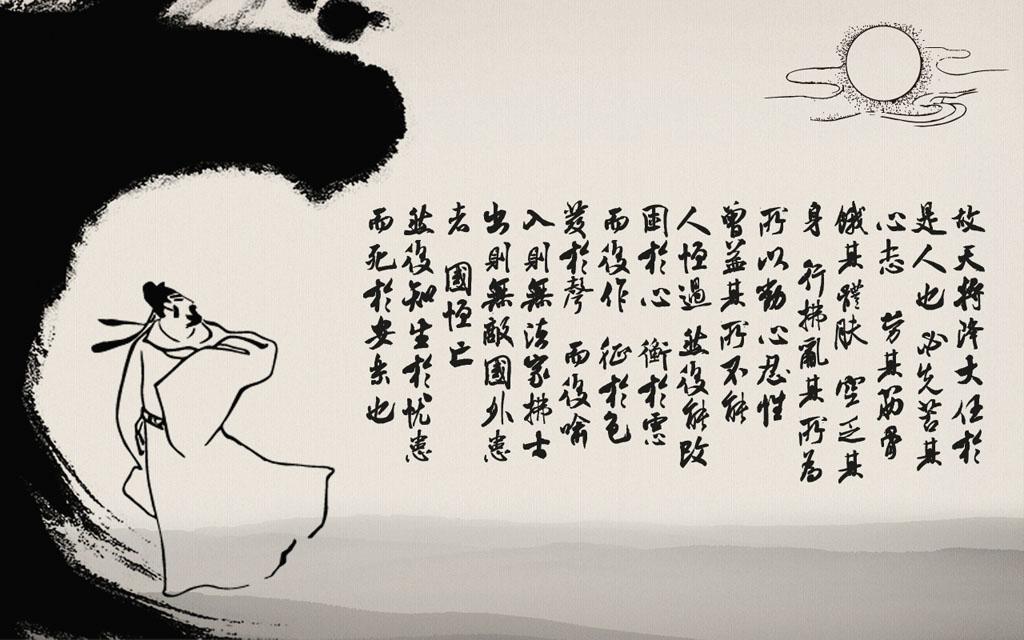 故天將降大任於
是人也 必先苦其
心志 勞其筋骨
餓其體膚 空乏其
身 行拂亂其所為
所以動心忍性
曾益其所不能
人恒過 然後能改
困於心 衡於慮
而後作 征於色
發於聲 而後喻
入則無法家拂士
出則無敵國外患
者 國恒亡
然後知生於忧患
而死於安樂也